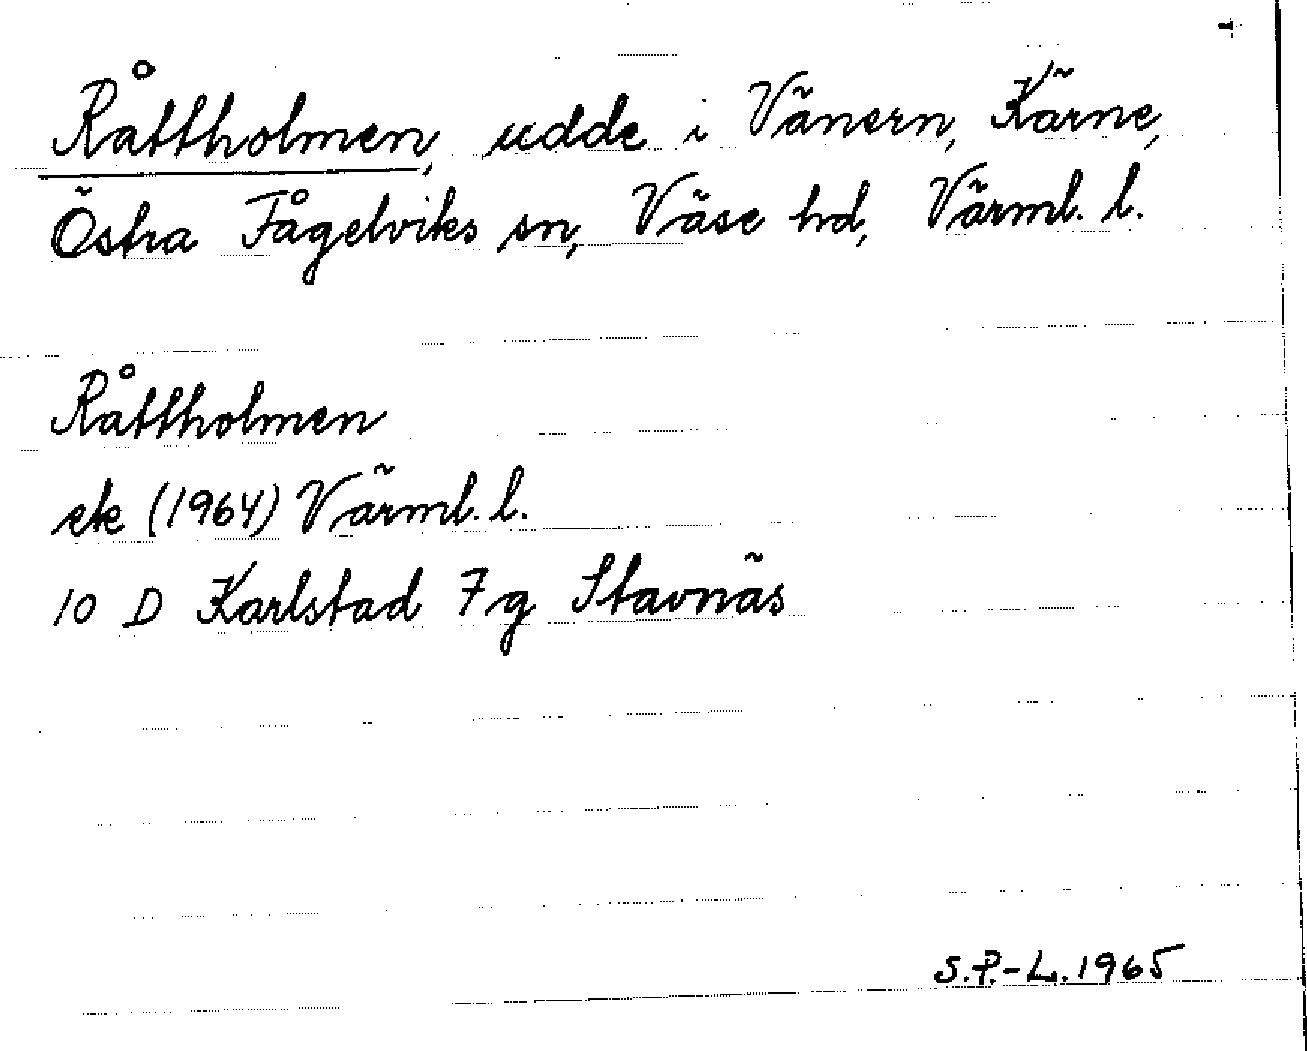 Råttholmen, udde i Vänern, Kärne,
Östra Fågelviks sn, Väse hd, Värml. l.
Råttholmen
ek (1964) Värml. l.
10 D Karlstad 7g Stavnäs
S.P.-L. 1965